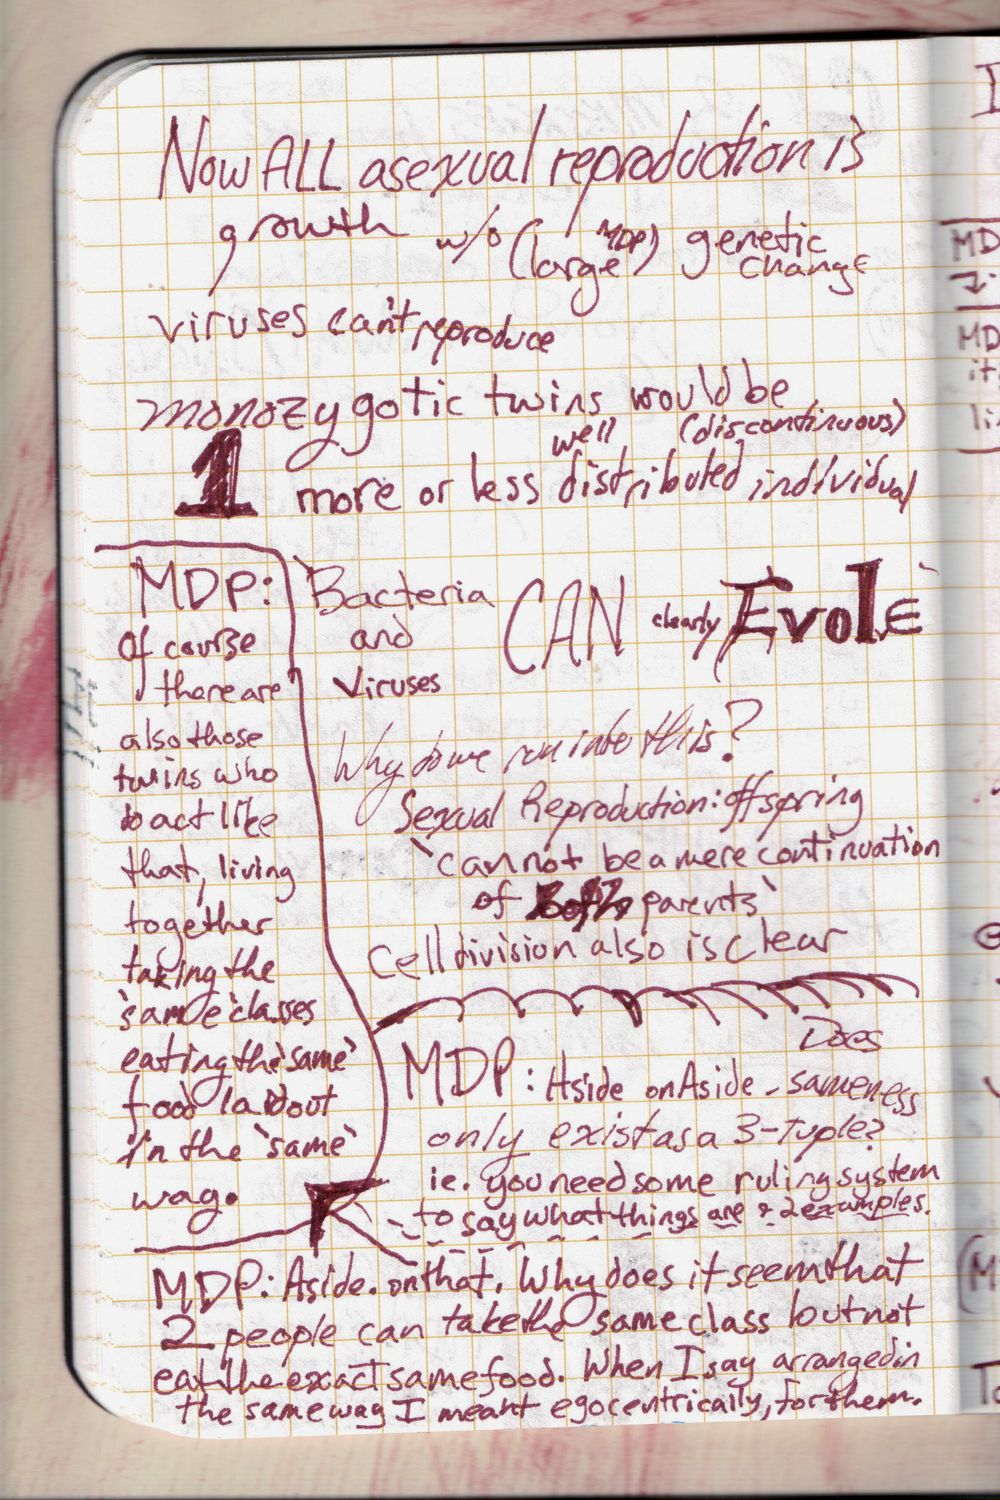 Now ALL asexual reproduction is
growth w/o (large MDP) genetic
change
viruses can't reproduce
monozygotic twins would be
well (discontinuous)
1 more or less distributed individual
MDP:
Of course
there are
also those
twins who
do act like
that, living
together
taking the
'same' classes
eating the 'same'
food laid out
in the 'same'
way.
Bacteria
and
viruses
CAN clearly Evolé
Why do we run into this?
Sexual Reproduction: offspring
'cannot be a mere continuation
of Both parents'
Cell division also is clear
MDP: Aside on Aside - Does sameness
only exist as a 3-tuple?
ie. you need some ruling system
to say what things are & 2 examples.
MDP: Aside. on that. Why does it seem that
2 people can take the same class but not
eat the exact same food. When I say arranged in
the same way I meant egocentrically, for them.
I
MD
MD
it
li
(M
To